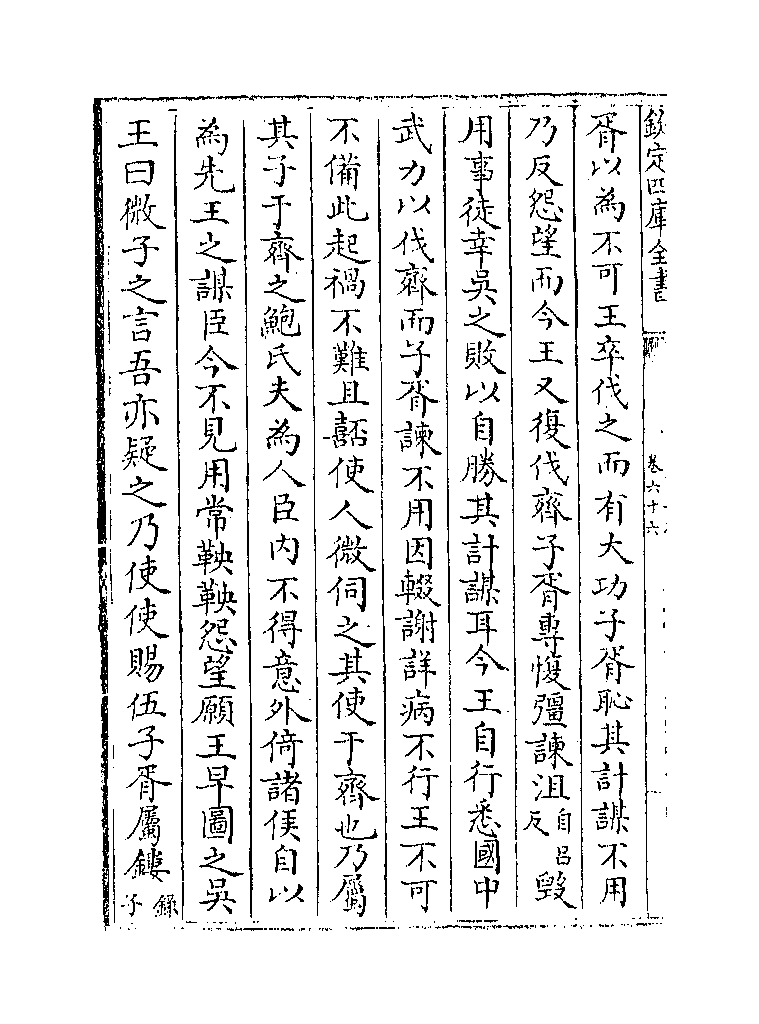 欽定四庫全書
卷六十六
胥以為不可王卒伐之而有大功子胥恥其計謀不用
乃反怨望而今王又復伐齊子胥專愎彊諫沮自呂反毀
用事徒幸吳之敗以自勝其計謀耳今王自行悉國中
武力以伐齊而子胥諫不用因輟謝詳病不行王不可
不備此起禍不難且嚭使人微伺之其使于齊也乃屬
其子于齊之鮑氏夫為人臣内不得意外倚諸侯自以
為先王之謀臣今不見用常鞅鞅怨望願王早圖之吳
王曰微子之言吾亦疑之乃使使賜伍子胥屬鏤錄子